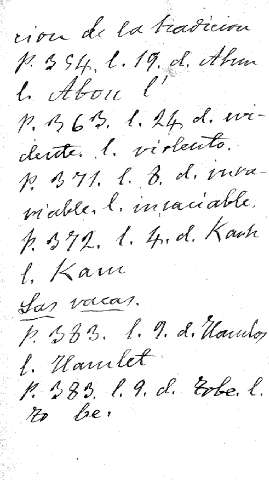 cion de la tradicion
p. 354. l. 19. d. Abun
l. Abou l'
p. 363. l. 24. d. evi-
dente. l. violento.
p. 371. l. 8. d. inva-
riable. l. insaciable.
p. 372. l. 4. d. Kank
l. Kam
Las vacas.
p. 383. l. 9. d. Hamlos
l. Hamlet
p. 383. l. 9. d. Tobe. l.
To be.